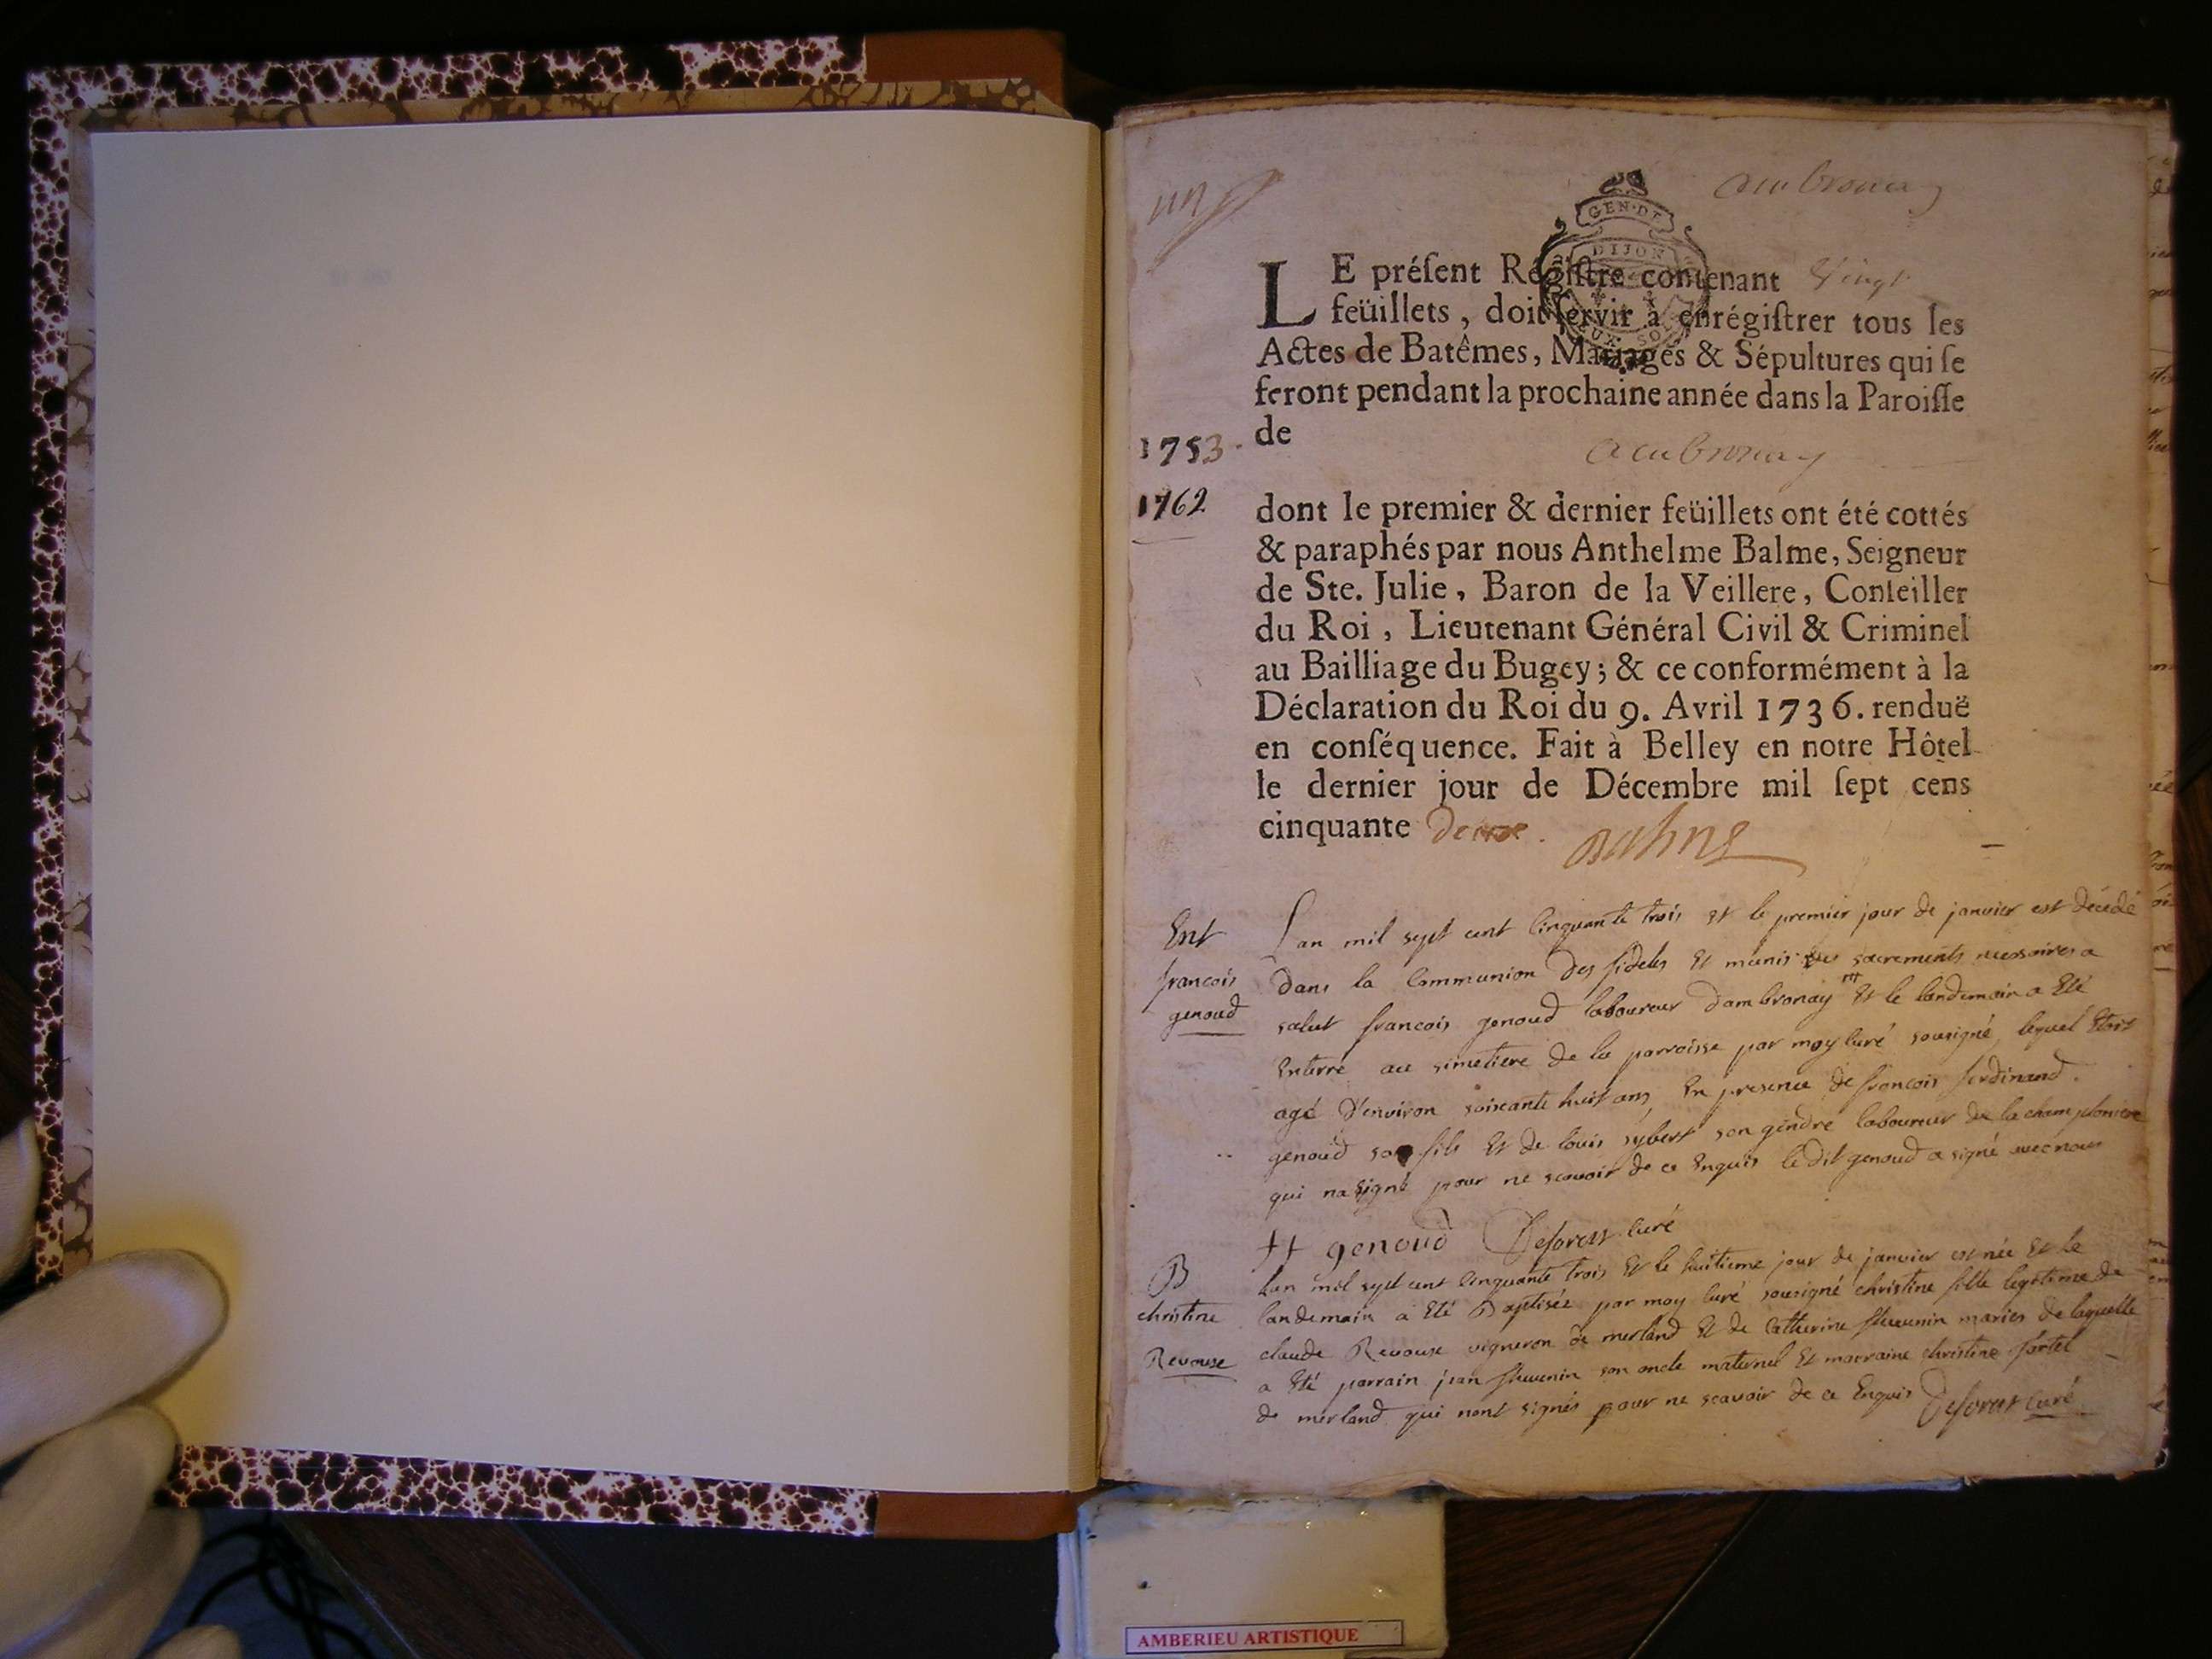 un
ambronay
GEN·DE
DIJON
DEUX SOLS
LE préſent Régiſtre contenant Vingt
feüillets, doit ſervir à enrégiſtrer tous les
Actes de Batêmes, Mariages & Sépultures qui ſe
feront pendant la prochaine année dans la Paroiſſe
de
1753.
ambronay
1762
dont le premier & dernier feüillets ont été cottés
& paraphés par nous Anthelme Balme, Seigneur
de Ste. Julie, Baron de la Veillere, Conſeiller
du Roi, Lieutenant Général Civil & Criminel
au Bailliage du Bugey; & ce conformément à la
Déclaration du Roi du 9. Avril 1736. renduë
en conſéquence. Fait à Belley en notre Hôtel
le dernier jour de Décembre mil ſept cens
cinquante Deux. Balme
Ent
francois
genoud
Lan mil sept cent cinquante trois et le premier jour de janvier est décédé
dans la Communion des fideles et munis des sacrements necessaires a
salut francois genoud laboureur dambronay et le landemain a Eté
Enterré au simetiere de la parroisse par moy curé sousigné, lequel Etoit
agé d'environ soixante huit ans, En presence de francois ferdinand
genoud son fils et de louis sybert son gendre laboureur de la championiere
qui na signé pour ne scavoir de ce Enquis le dit genoud a signé avec nous
ff genoud Deforest curé
B
christine
Revouse
Lan mil sept cent cinquante trois et le huitieme jour de janvier est née et le
landemain a Eté Baptisée par moy curé sousigné christine fille legitime de
claude Revouse vigneron de merland et de Catherine thevenin mariés de laquelle
a Eté parrain jean thevenin son oncle maternel et marraine christine fortel
de merland qui nont signés pour ne scavoir de ce Enquis Deforest curé
AMBERIEU ARTISTIQUE